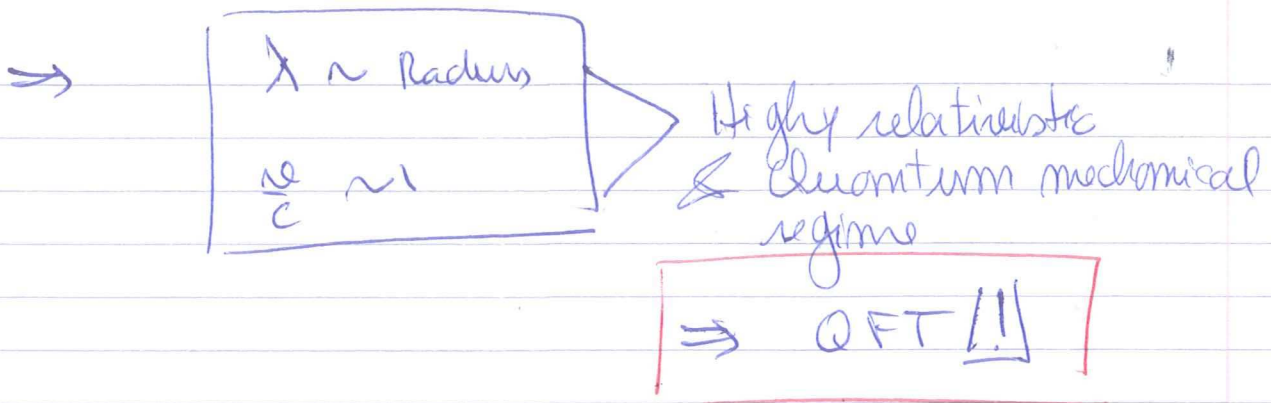 ⇒ λ ~ Radius
v/c ~ 1
Highy relativistic
& Quantum mechanical
regime
⇒ QFT !!